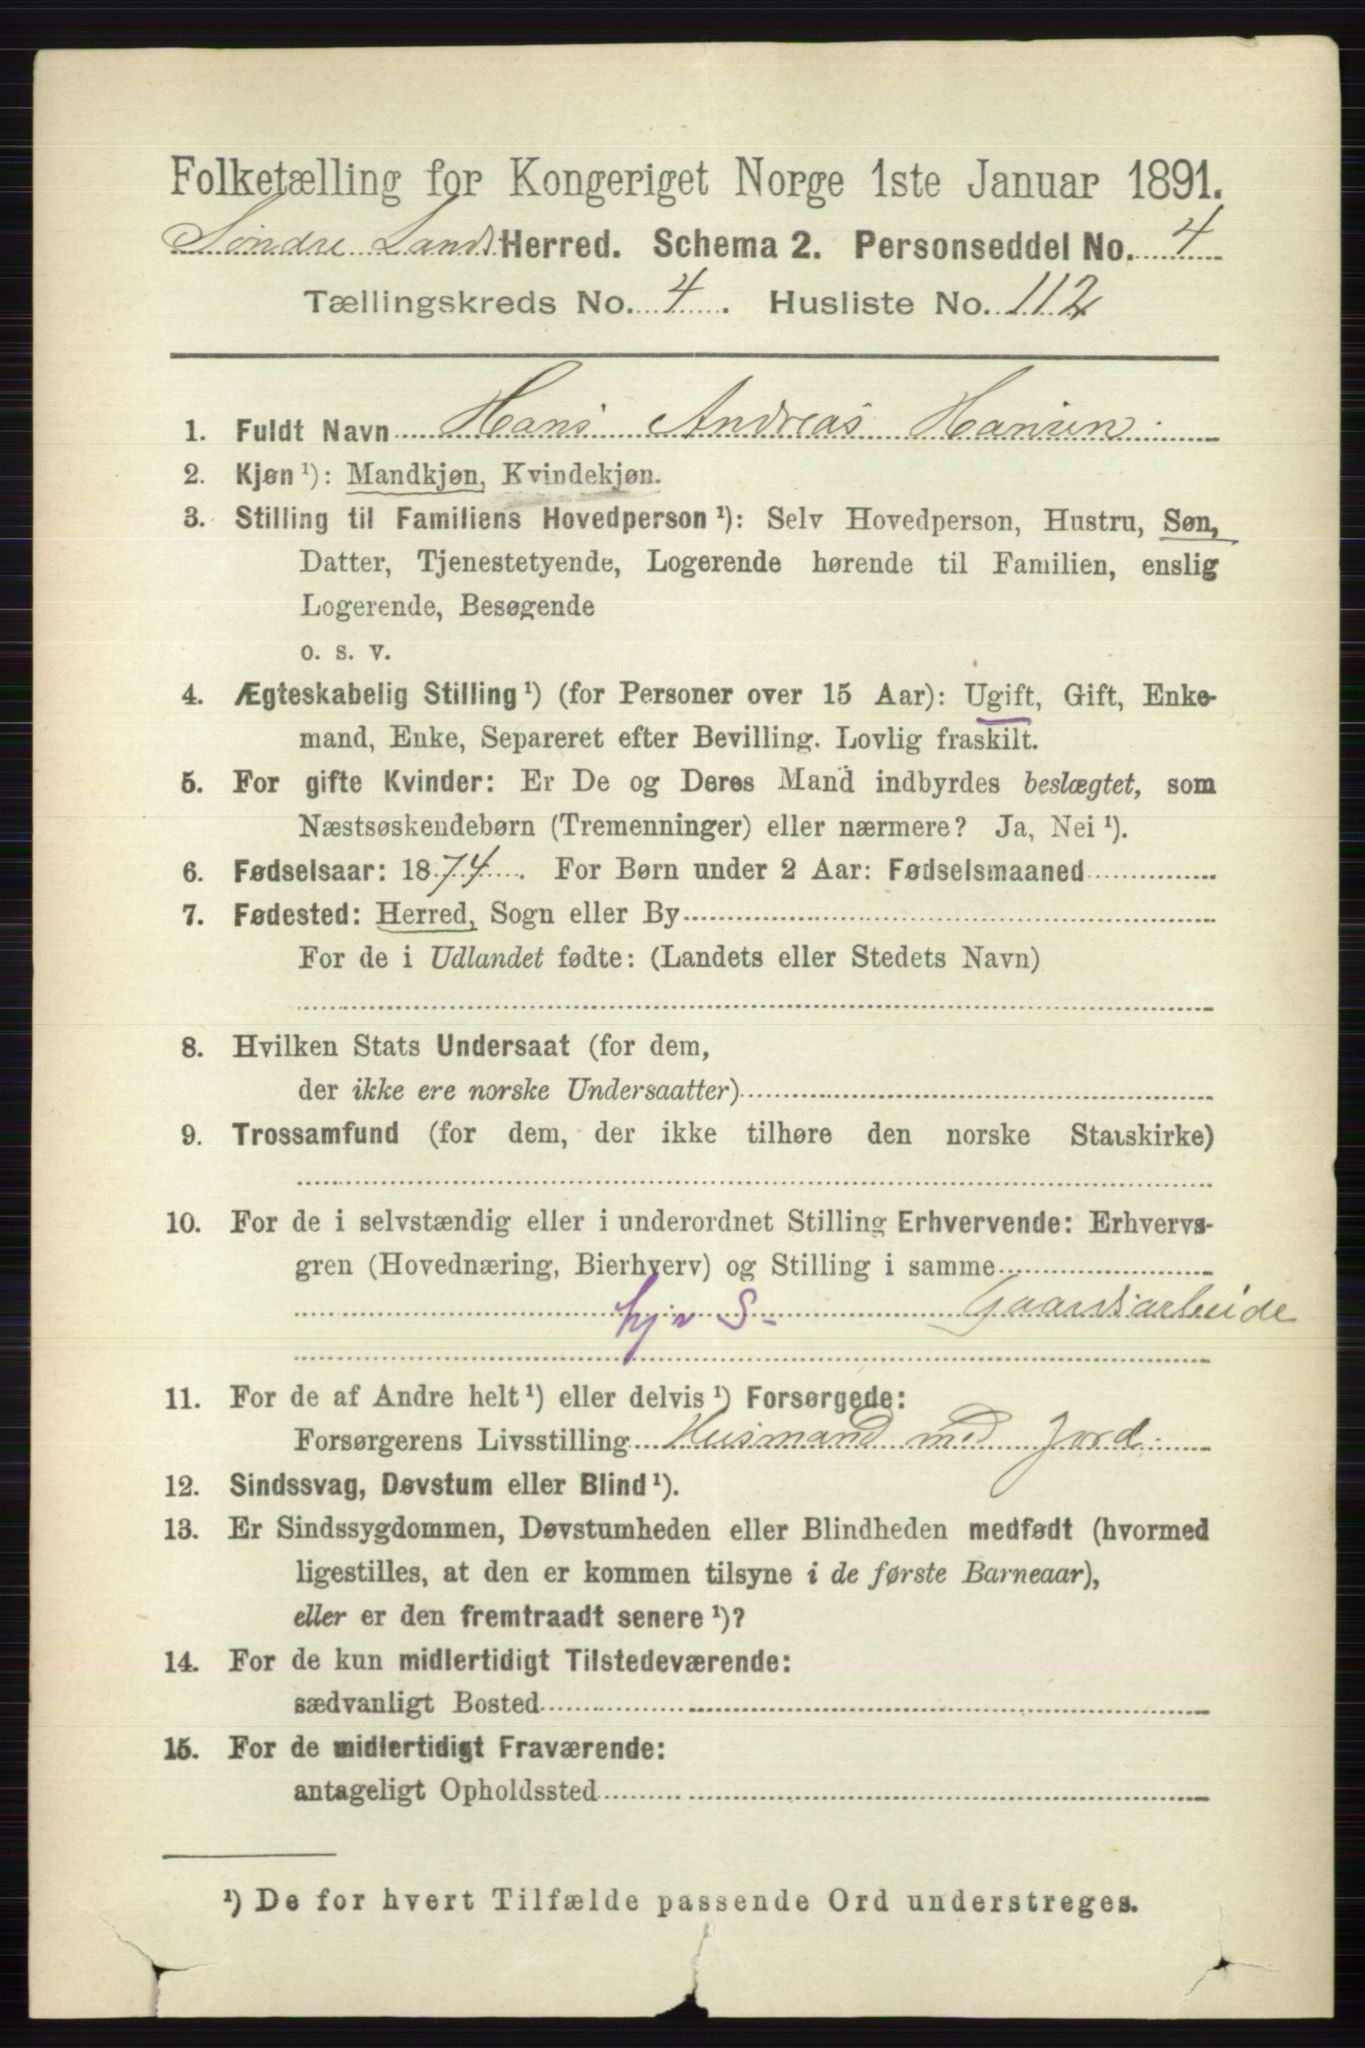 Folketælling for Kongeriget Norge 1ste Januar 1891.
Søndre Lands Herred. Schema 2. Personseddel No. 4
Tællingskreds No. 4. Husliste No. 112
1. Fuldt Navn Hans Andreas Hansen
2. Kjøn ¹): Mandkjøn, Kvindekjøn.
3. Stilling til Familiens Hovedperson ¹): Selv Hovedperson, Hustru, Søn,
Datter, Tjenestetyende, Logerende hørende til Familien, enslig
Logerende, Besøgende
o. s. v.
4. Ægteskabelig Stilling ¹) (for Personer over 15 Aar): Ugift, Gift, Enke-
mand, Enke, Separeret efter Bevilling. Lovlig fraskilt.
5. For gifte Kvinder: Er De og Deres Mand indbyrdes beslægtet, som
Næstsøskendebørn (Tremenninger) eller nærmere? Ja, Nei ¹).
6. Fødselsaar: 1874. For Børn under 2 Aar: Fødselsmaaned
7. Fødested: Herred, Sogn eller By
For de i Udlandet fødte: (Landets eller Stedets Navn)
8. Hvilken Stats Undersaat (for dem,
der ikke ere norske Undersaatter)
9. Trossamfund (for dem, der ikke tilhøre den norske Statskirke)
10. For de i selvstændig eller i underordnet Stilling Erhvervende: Erhvervs-
gren (Hovednæring, Bierhverv) og Stilling i samme
S- Gaardsarbeide
11. For de af Andre helt ¹) eller delvis ¹) Forsørgede:
Forsørgerens Livsstilling Husmand med Jord
12. Sindssvag, Døvstum eller Blind ¹).
13. Er Sindssygdommen, Døvstumheden eller Blindheden medfødt (hvormed
ligestilles, at den er kommen tilsyne i de første Barneaar),
eller er den fremtraadt senere ¹)?
14. For de kun midlertidigt Tilstedeværende:
sædvanligt Bosted
15. For de midlertidigt Fraværende:
antageligt Opholdssted
¹) De for hvert Tilfælde passende Ord understreges.